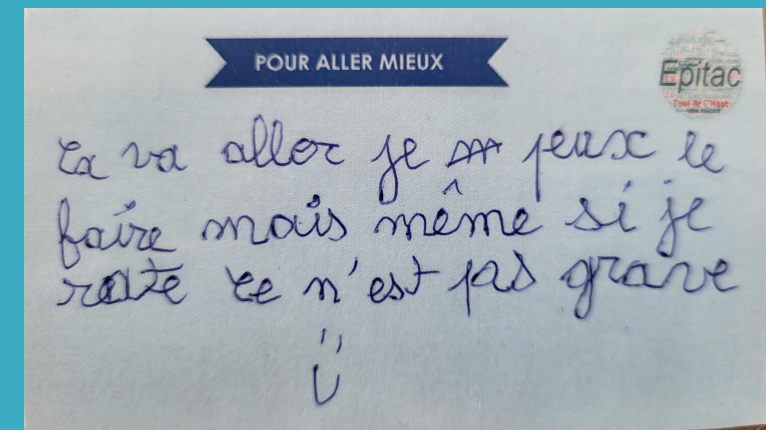 POUR ALLER MIEUX
Epitac
Ca va aller je peux le
faire mais même si je
rate ce n'est pas grave